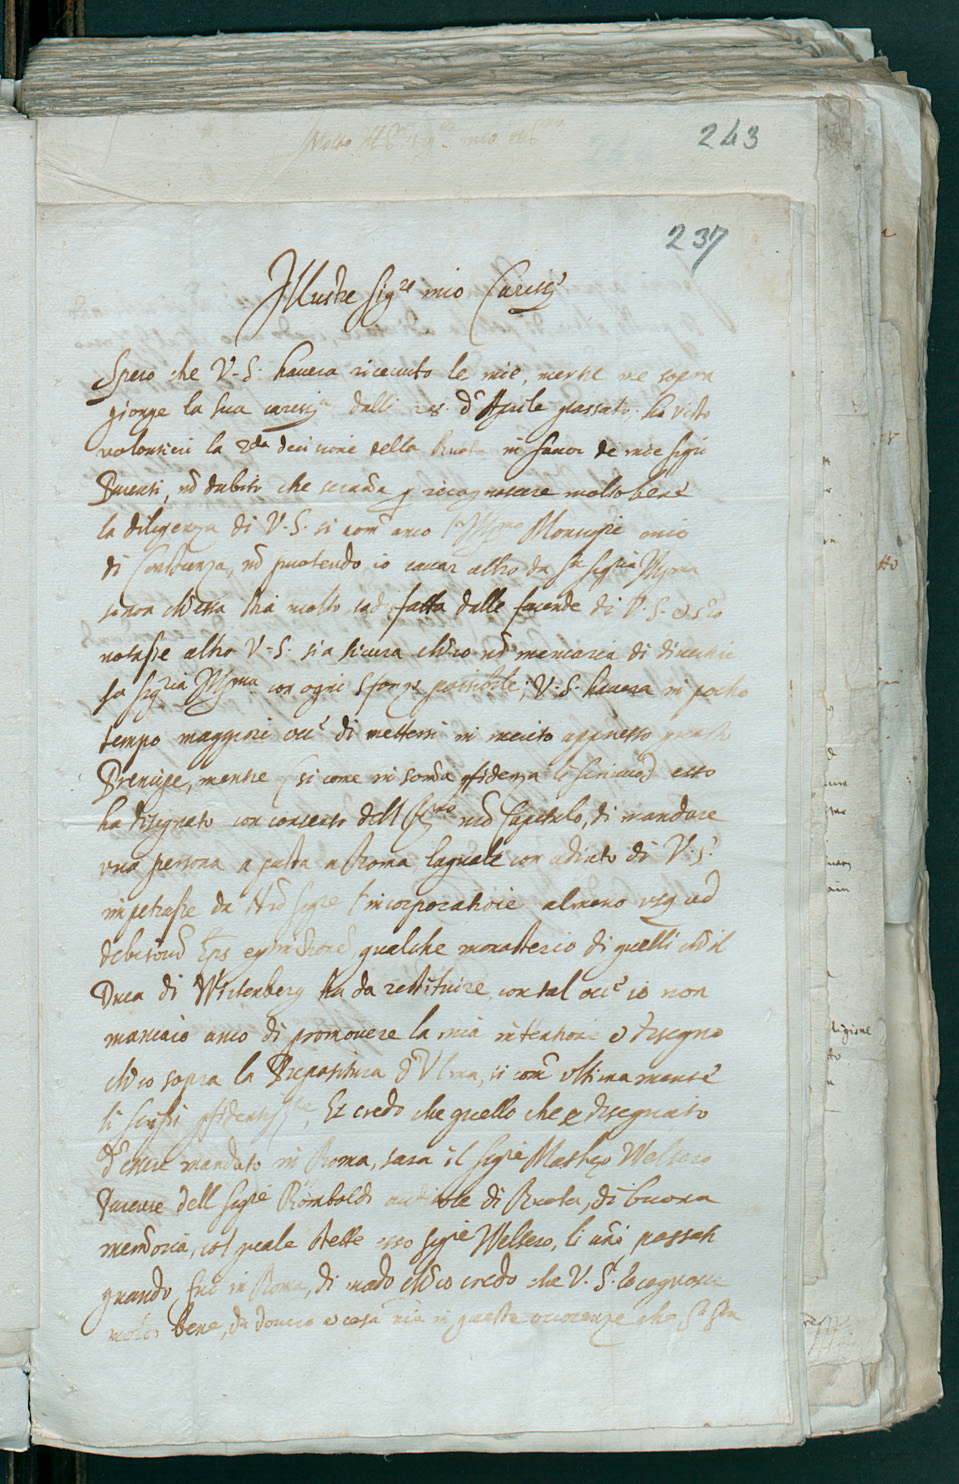 243
237
Illustre Sig.re mio Cariss.o
Spero che V. S. havera ricevuto le mie, mentre me sopra
gionge la sua cariss.a dalli 28. d'Aprile passato, ho visto
volontieri la 2da decisione della Ruota in favor de miei sig.ri
Parenti, nõ dubiti che saranno p recognoscere molto bene
la diligenza di V. S. si com' anco l'Ill.mo Monsig.re mio
di Constanza, nõ puotendo io cavar altro da S.a Sig.ria Ill.ma
se non ch'essa sia molto sodisfatta dalle facende di V. S. et se io
notasse altro V. S. sia sicura ch'io nõ mancarei di
Sa Sig.ria Ill.ma con ogni sforzo possibile; V. S. havera in pocho
tempo maggiore occ.e di mettersi in merito appresso questo
Prencipe, mentre (si come in somma pfidenza lo scrivo) esso
ha disegnato con concerto dell R.mo nrõ Capitolo, di mandare
una persona a posta a Roma laquale con adiuto di V. S.
impetrasse da Nrõ Sig.re l'incorporatione almeno usq ad
qualche monasterio di quelli ch'il
Duca di Wirtenberg ha da restituire, con tal occ.e io non
mancaro anco di promovere la mia intentione e disegno
ch'io sopra la Prepositura d'Ulma, si com' ultimamente
li scrissi pfidentiss.te, Et credo che quello che e disegnato
d'essere mandato in Roma, sara il Sig.re Mattheo Welsero
Parente dell Sig.re Romboldi auditore di Ruota, di buona
memoria, col quale stette esso Sig.re Welsero, li anni passati
quando fui in Roma, di modo ch'io credo che V. S. lo cognosca
molto bene, da dovero e cosa mia in queste occorenze che